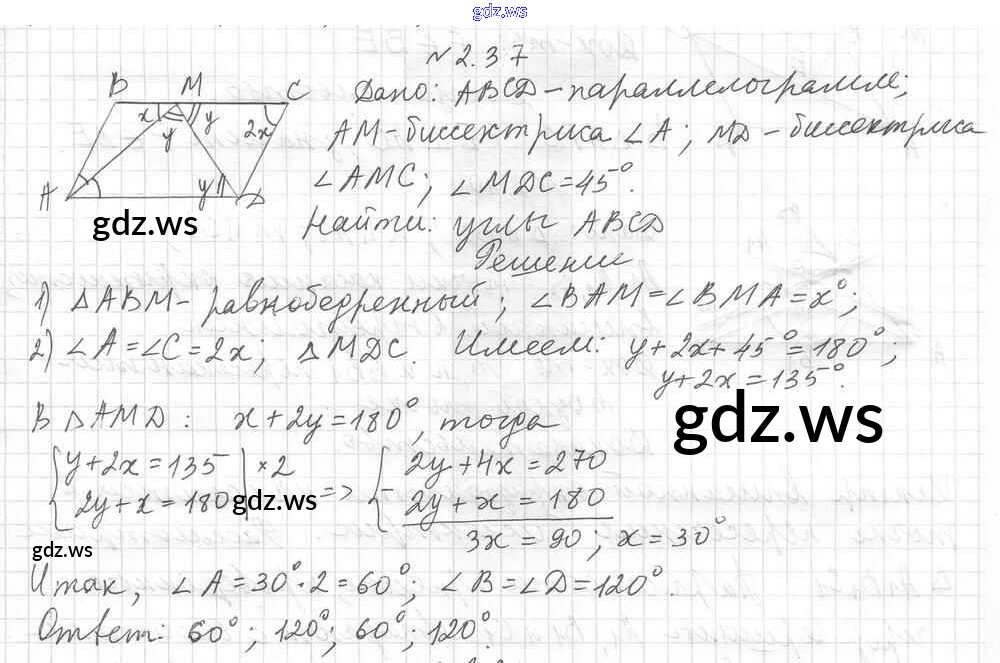 gdz.ws
№ 2.37
B M C
x y 2x
y
A y D
Дано: ABCD - параллелограмм;
AM - биссектриса ∠A; MD - биссектриса
∠AMC; ∠MDC = 45°.
gdz.ws
Найти: углы ABCD
Решение
1) △ABM - равнобедренный; ∠BAM = ∠BMA = x°;
2) ∠A = ∠C = 2x; △MDC. Имеем: y + 2x + 45° = 180°;
y + 2x = 135°.
В △AMD: x + 2y = 180°, тогда
gdz.ws
{ y + 2x = 135 | × 2 { 2y + 4x = 270
2y + x = 180 gdz.ws => 2y + x = 180
3x = 90; x = 30°
gdz.ws
Итак, ∠A = 30° · 2 = 60°; ∠B = ∠D = 120°.
Ответ: 60°; 120°; 60°; 120°.